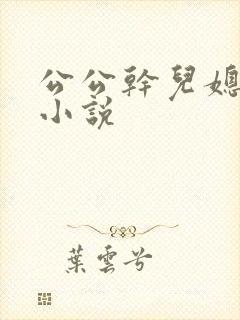 公公幹兒媳
小說
葉雲兮